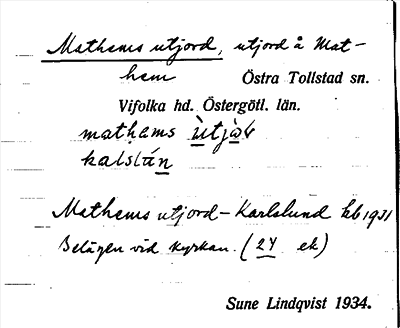 Mathems utjord, utjord å Mat-
hem Östra Tollstad sn.
Vifolka hd. Östergötl. län.
mathems ùtjàɷ
kalslán
Mathems utjord – Karlslund kb 1931
Belägen vid kyrkan. (24 ek)
Sune Lindqvist 1934.